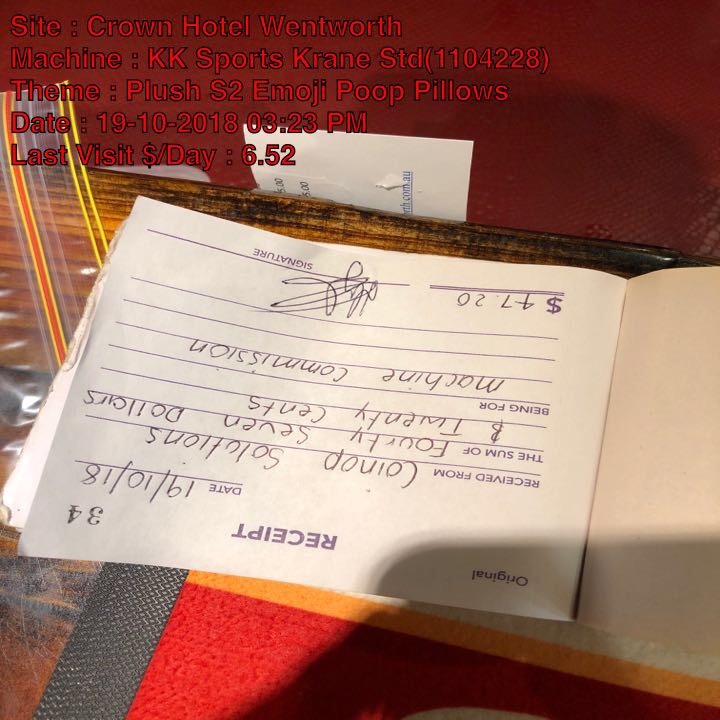 Site : Crown Hotel Wentworth
Machine : KK Sports Krane Std(1104228)
Theme : Plush S2 Emoji Poop Pillows
Date : 19-10-2018 03:23 PM
Last Visit $/Day : 6.52
Original
RECEIPT
34
DATE 19/10/18
RECEIVED FROM Coinop Solutions
THE SUM OF Fourty Seven Dollars
& Twenty Cents
BEING FOR
Machine Commission
$ 47.20
SIGNATURE
5.00
5.00
rth.com.au